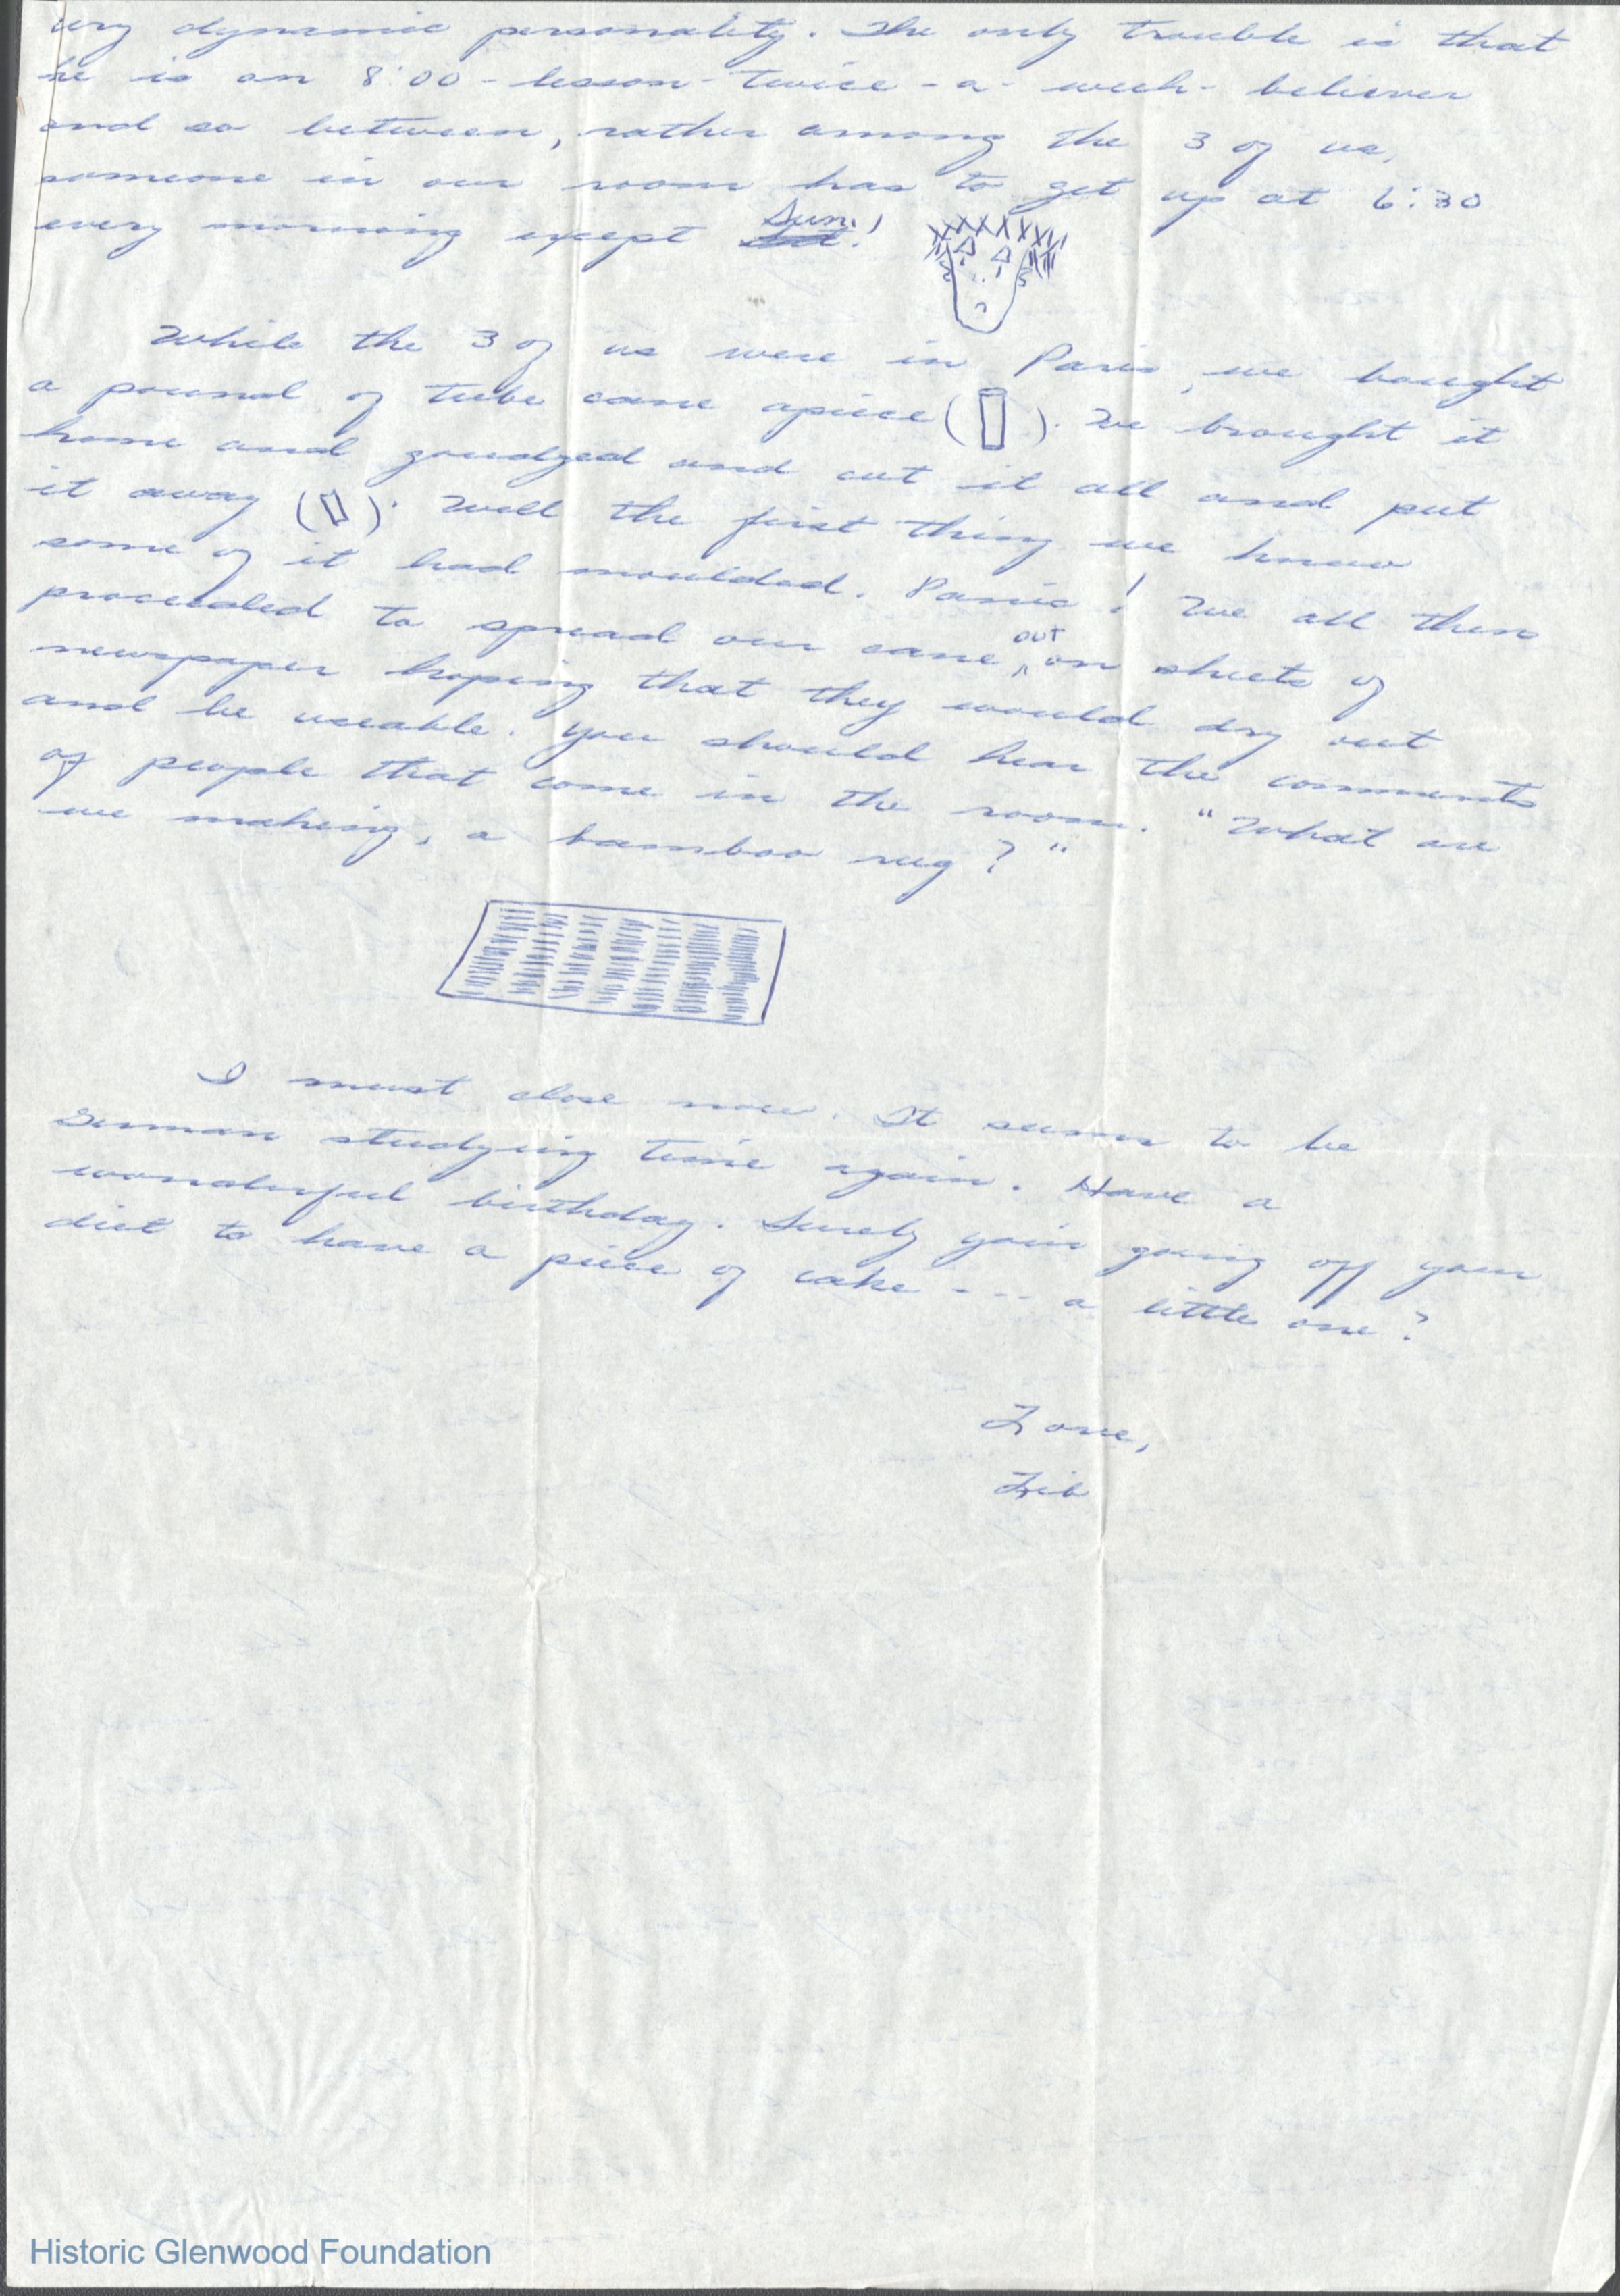 very dynamic personality. The only trouble is that
he is an 8:00 - lesson - twice - a - week - believer
and so between, rather among the 3 of us,
someone in our room has to get up at 6:30
every morning except Sun.!
While the 3 of us were in Paris, we bought
a pound of tube cane apiece ( ). We brought it
home and goudged and cut it all and put
it away ( ). Well the first thing we know
some of it had moulded. Panic! We all then
proceeded to spread our cane out on sheets of
newspaper hoping that they would dry out
and be useable. You should hear the comments
of people that come in the room. "What are
we making, a bamboo rug?"
I must close now. It seems to be
German studying time again. Have a
wonderful birthday. Surely your going off your
diet to have a piece of cake --- a little one?
Love,
Lib
Historic Glenwood Foundation